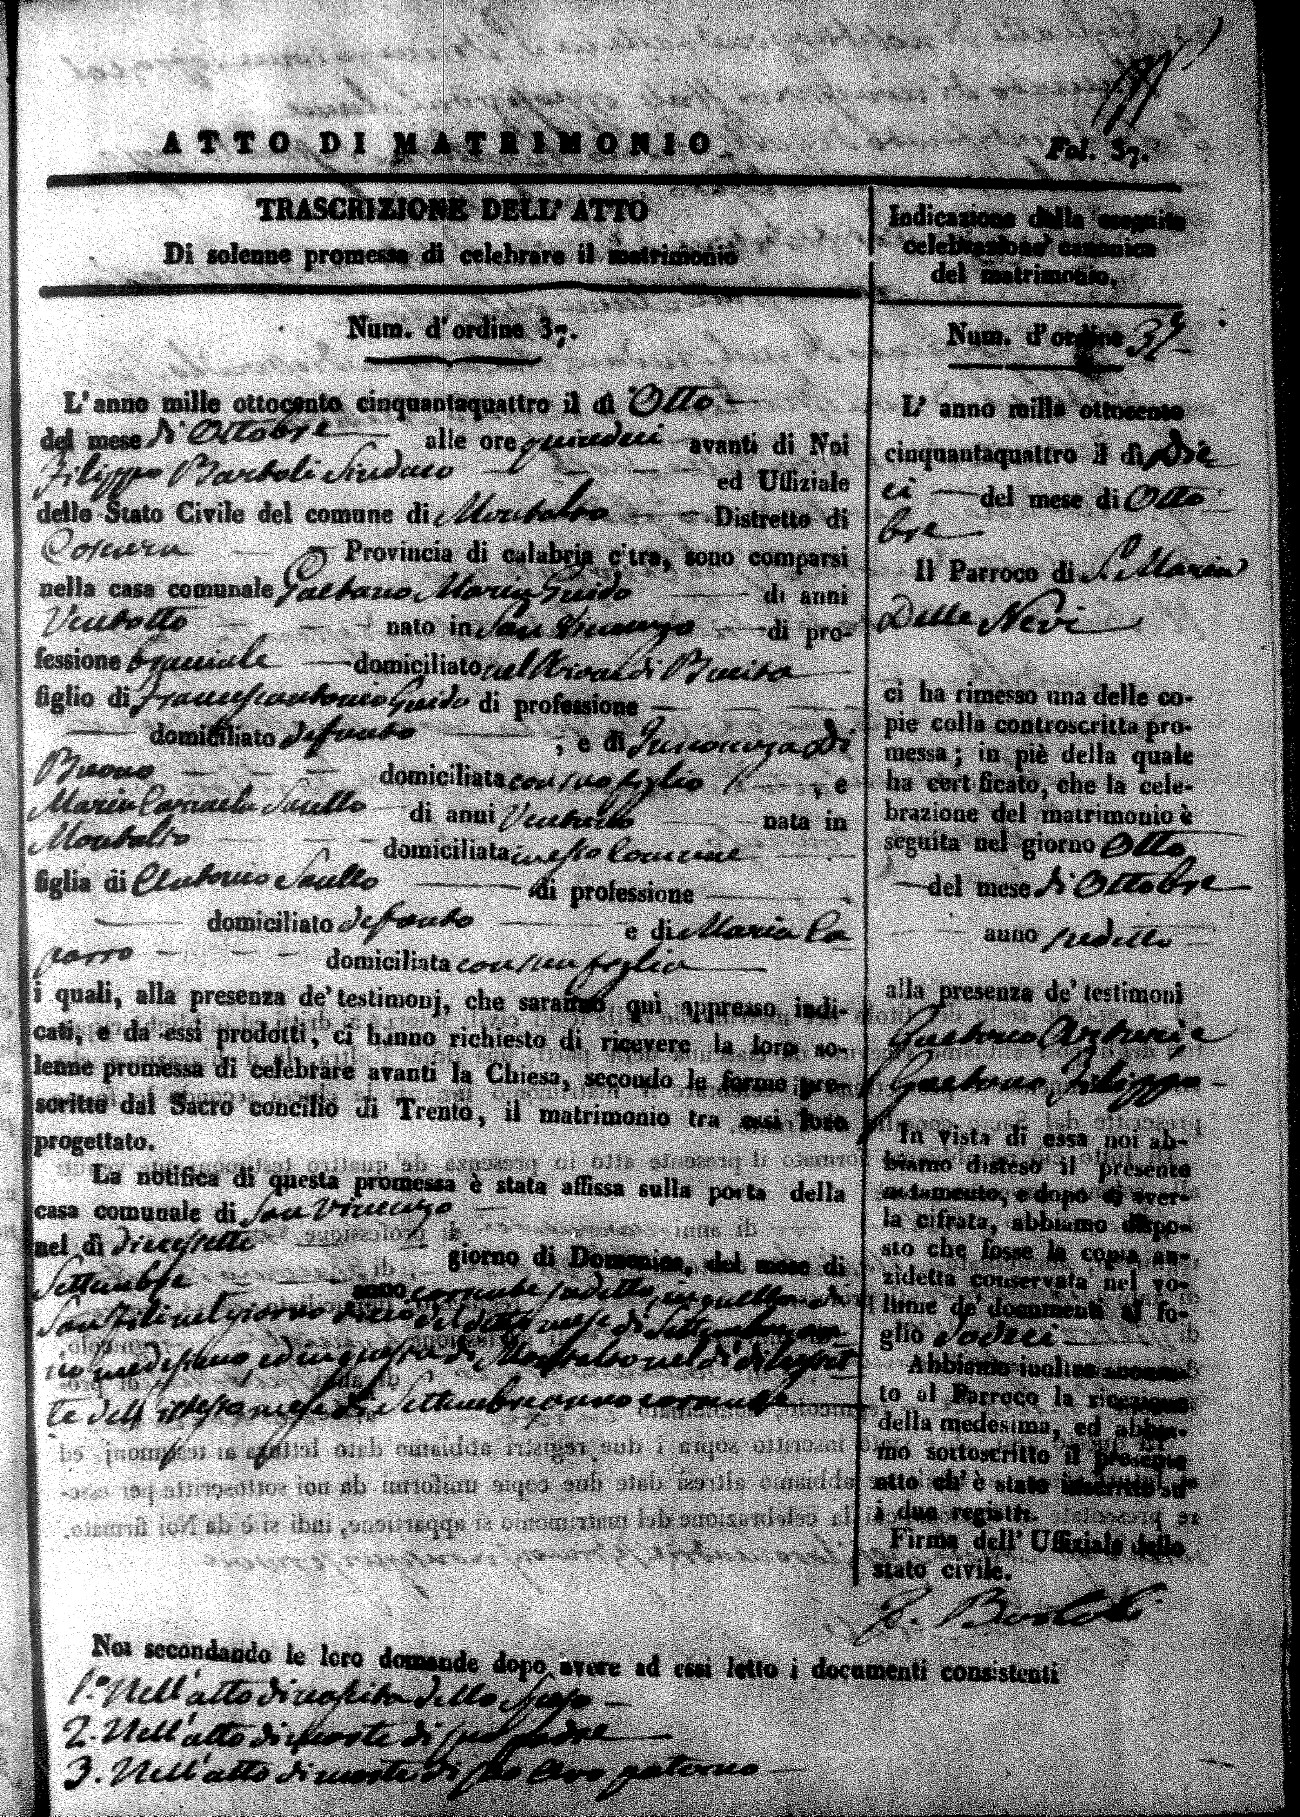 ATTO DI MATRIMONIO
Fol. 37.
TRASCRIZIONE DELL' ATTO
Di solenne promessa di celebrare il matrimonio
Num. d'ordine 37.
L'anno mille ottocento cinquantaquattro il dì Otto
del mese di Ottobre alle ore quindeci avanti di Noi
Filippo Bartoli Sindaco ed Uffiziale
dello Stato Civile del comune di Montalto Distretto di
Cosenza Provincia di calabria citra, sono comparsi
nella casa comunale Gaetano Maria Guido di anni
Ventotto nato in San Vincenzo di pro-
fessione braciale domiciliato nel Rivaldi Bucita
figlio di Francescantonio Guido di professione
domiciliato defonto , e di Innocenza di
Buono domiciliata con suo figlio , e
Maria Carmela Saullo di anni nata in
Montalto domiciliata in esso Comune
figlia di Antonio Saullo di professione
domiciliato defonto e di Maria Ca
parro domiciliata con sua figlia
i quali, alla presenza de' testimonj, che saranno quì appresso indi-
cati, e da essi prodotti, ci hanno richiesto di ricevere la loro so-
lenne promessa di celebrare avanti la Chiesa, secondo le forme pre-
scritte dal Sacro concilio di Trento, il matrimonio tra essi loro
progettato.
La notifica di questa promessa è stata affissa sulla porta della
casa comunale di San Vincenzo
nel dì diecessette giorno di Domenica, del mese di
Settembre anno corrente sudetto, in quella di
San Fili nel giorno dieci del detto mese di Settembre an
no medesimo ed in questa di Montalto nel dì diciasset
te dell'istesso mese di Settembre anno corrente
Noi secondando le loro domande dopo avere ad essi letto i documenti consistenti
1.° Nell'atto di nascita dello Sposo
2. Nell'atto di morte di suo padre
3. Nell'atto di morte di suo Avo paterno
Indicazione della seguita
celebrazione canonica
del matrimonio.
Num. d'ordine 37
L' anno mille ottocento
cinquantaquattro il dì Die
ci del mese di Otto
bre
Il Parroco di S. Maria
Delle Nevi
ci ha rimesso una delle co-
pie colla controscritta pro-
messa; in piè della quale
ha certificato, che la cele-
brazione del matrimonio è
seguita nel giorno Otto
del mese di Ottobre
anno sudetto
alla presenza de' testimoni
Gaetano Filippo
In vista di essa noi ab-
biamo disteso il presente
notamento, e dopo di aver-
la cifrata, abbiamo dispo-
sto che fosse la copia an-
zidetta conservata nel vo-
lume de' documenti al fo-
glio Sedeci
Abbiamo inoltre accusa-
to al Parroco la ricezione
della medesima, ed abbia-
mo sottoscritto il presente
atto ch' è stato inscritto su'
i due registri.
Firma dell' Uffiziale dello
stato civile.
F. Bartoli